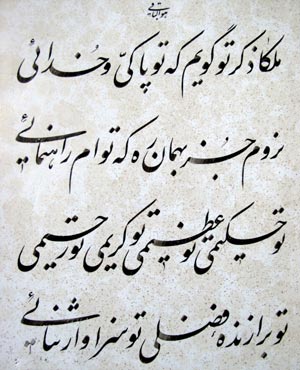 هو الباقی
ملکا ذکر تو گویم که تو پاکی و خدائی
نروم جز بهمان ره که توام راهنمائی
تو حکیمی تو عظیمی تو کریمی تو رحیمی
تو برازنده فضلی تو سزاوار ثنائی